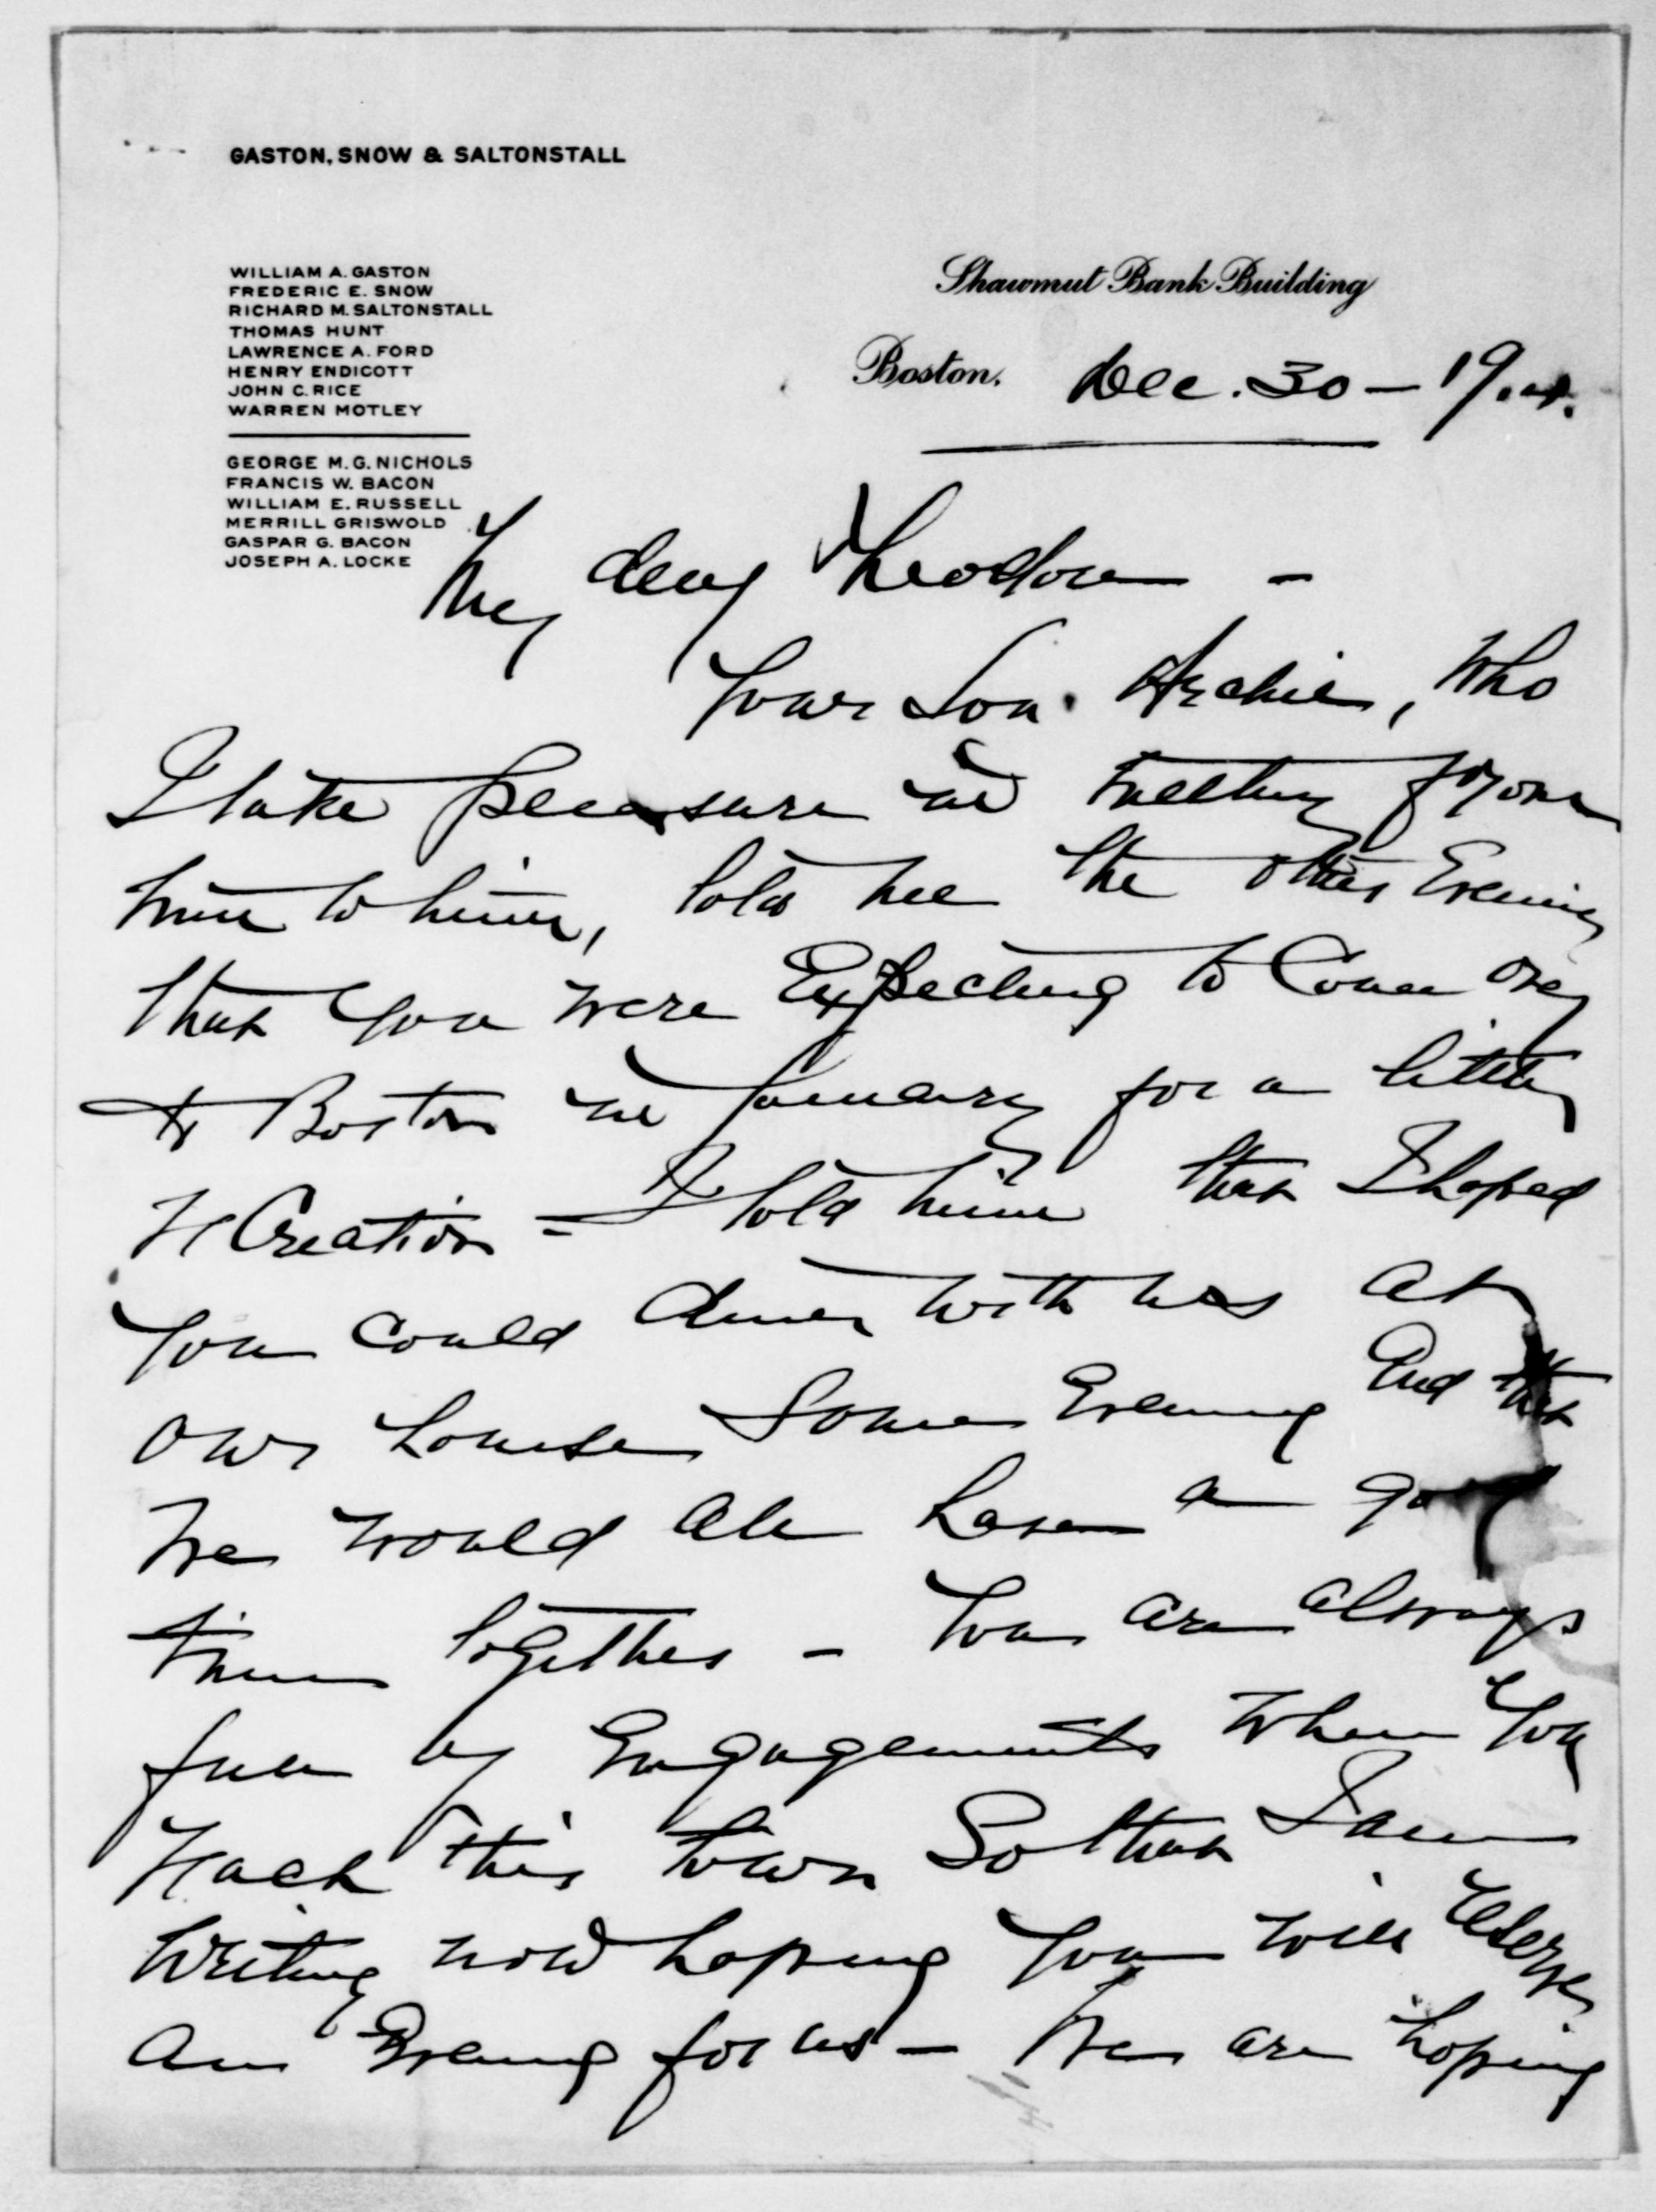 GASTON, SNOW & SALTONSTALL
WILLIAM A. GASTON
FREDERIC E. SNOW
RICHARD M. SALTONSTALL
THOMAS HUNT
LAWRENCE A. FORD
HENRY ENDICOTT
JOHN C. RICE
WARREN MOTLEY
GEORGE M. G. NICHOLS
FRANCIS W. BACON
WILLIAM E. RUSSELL
MERRILL GRISWOLD
GASPAR G. BACON
JOSEPH A. LOCKE
Shawmut Bank Building
Boston, Dec. 30 – 19
My dear Theodore –
Your son Archie, who
I take pleasure in meeting from
time to time, told me the other Evening
that you were Expecting to Come over
to Boston in January for a little
reCreation = I told him that I hoped
you could dine with us at
our house Some Evening and that
we would all have a good
time together – You are always
full of Engagements when you
reach this town So that I am
writing now hoping you will reserve
an Evening for us – We are hoping